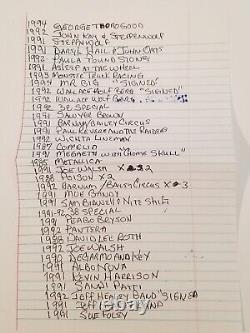 1994 GEORGE THOROGOOD
1992 JOHN KAY & STEPPENWOLF
1991 STEPPENWOLF
1991 DARYL HALL & JOHN OATES
1992 PAULA POUNDSTONE
1991 ASLEEP AT THE WHEEL
1993 MONSTER TRUCK RACING
1994 MR BIG "SIGNED"
1992 WALLACE "SIGNED"
1992
1992 38 SPECIAL
1991 SAWYER BROWN
1991 BARNUM/BAILEY CIRCUS
1991 PAUL REVERE AND THE RAIDERS
1992 WICHITA LINEMAN
1987
1991 MEGADETH WITH CHROME SKULL"
1985 METALLICA
1991 JOE WALSH X
1988 POISON X2
1992 BARNUM/BAILEY CIRCUS X 3
1991 MOE BANDY
1991 SAM BIRMAN & NITE SHIFT
1991-92 38 SPECIAL
1991 PEABO BRYSON
1992 PANTERA
1988 DAVID LEE ROTH
1992 JOE WALSH
1990 DEGARMO AND KEY
1991 ALDO NOVA
1991 KEVIN HARRISON
1991 SANDI PATTI
1992 JEFF HEALEY BAND "SIGNED
1991
1991 SUE FOLEY